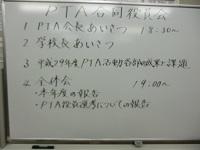 PTA合同役員会
1 PTA会長あいさつ 18:30〜
2 学校長あいさつ
3 平成29年度PTA活動各部の成果と課題
4 全体会 19:00〜
・本年度の報告
・PTA役員選考についての報告